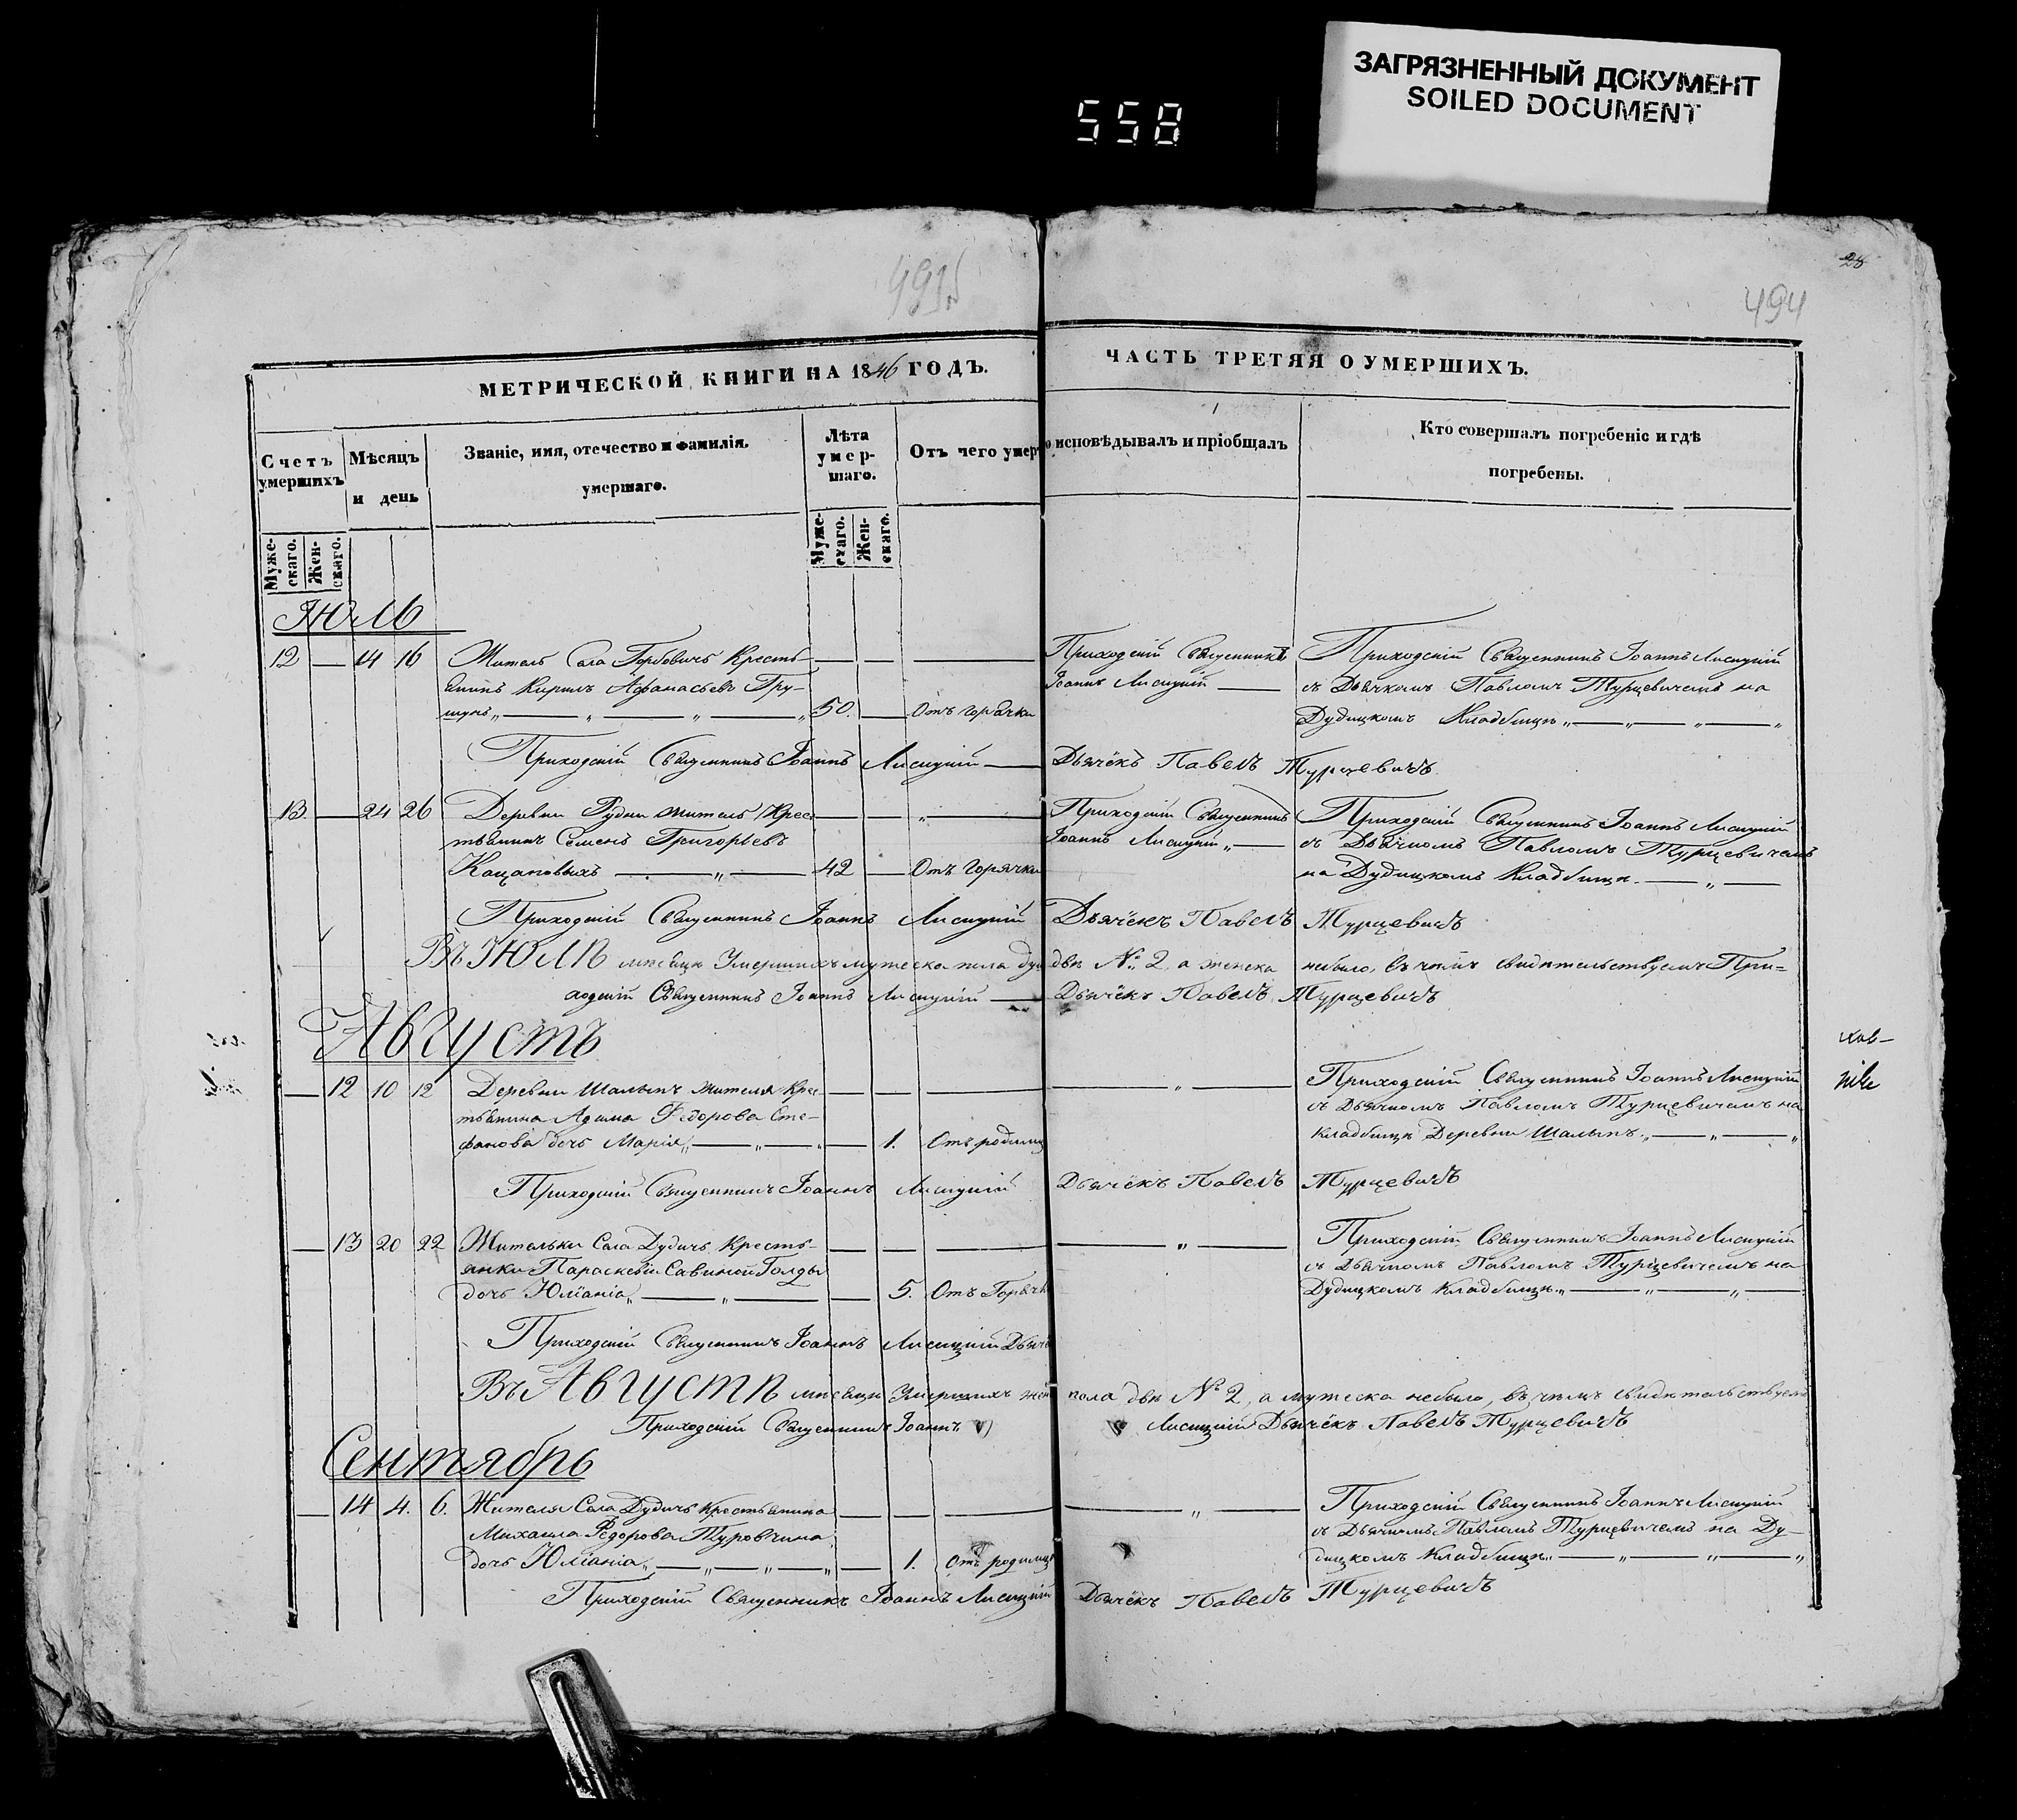 ЗАГРЯЗНЕННЫЙ ДОКУМЕНТ
SOILED DOCUMENT
558
28
494
МЕТРИЧЕСКОЙ КНИГИ НА 1846 ГОДЪ.
ЧАСТЬ ТРЕТЯЯ О УМЕРШИХЪ.
Счетъ умершихъ
Мѣсяцъ и день
Званіе, имя, отечество и фамилія.
умершаго.
Лѣта умер-
шаго.
Отъ чего умер
о исповѣдывалъ и пріобщалъ
Кто совершалъ погребеніе и гдѣ
погребены.
Муже-
скаго.
Жен-
скаго.
Муже-
скаго.
Жен-
скаго.
Июль
12 — 14 16 Житель Села Горбовичъ Кресть- — — — Приходскій Священникъ Приходскій Священникъ Іоаннъ Лисицкій
янинъ Кирилъ Афанасьевъ Гру- Іоаннъ Лисицкій — съ Дьячкомъ Павломъ Турцевичемъ на
„ — „ — „ — „ 50. — Отъ горячки Дудицкомъ Кладбищѣ „ — „ — „ — „
Приходскій Священникъ Іоаннъ Лисицкій — Дьячёкъ Павелъ Турцевичъ
13. — 24 26 Деревни Рудни житель Крес- — — „ — Приходскій Священникъ Приходскій Священникъ Іоаннъ Лисицкій
тьянинъ Семенъ Григорьевъ Іоаннъ Лисицкій „ — съ Дьячкомъ Павломъ Турцевичемъ
Кацаповыхъ — „ — 42 — Отъ горячки на Дудицкомъ Кладбищѣ. — „ —
Приходскій Священникъ Іоаннъ Лисицкій Дьячёкъ Павелъ Турцевичъ
Въ Июлѣ мѣсяцѣ Умершихъ мужеска пола двѣ № 2, а женска небыло, въ чемъ свидѣтельствуемъ При=
ходскій Священникъ Іоаннъ Лисицкій — Дьячёкъ Павелъ Турцевичъ
Августъ
— 12 10 12 Деревни Шалыпъ жителя Крес- — — — — „ — Приходскій Священникъ Іоаннъ Лисицкій
тьянина Адама Федорова Сте- съ Дьячкомъ Павломъ Турцевичемъ на
фанова дочь Марія „ — „ — „ — 1. Отъ родимц Кладбищѣ Деревни Шалыпъ. „ — „ — „
Приходскій Священникъ Іоаннъ Лисицкій Дьячёкъ Павелъ Турцевичъ
— 13 20 22 Жительки Села Дудичъ Кресть- — — — — „ — Приходскій Священникъ Іоаннъ Лисицкій
янки Параскевіи Савиной Голды съ Дьячкомъ Павломъ Турцевичемъ на
дочь Юліанія „ — „ — — 5. Отъ Горячк Дудицкомъ Кладбищѣ. „ — „ — „ —
Приходскій Священникъ Іоаннъ Лисицкій Дьячё
Въ Августѣ мѣсяцѣ Умершихъ жен пола двѣ № 2, а мужеска небыло, въ чемъ свидѣтельствуемъ
Приходскій Священникъ Іоаннъ Лисицкій Дьячёкъ Павелъ Турцевичъ
Сентябрь
— 14 4. 6. Жителя Села Дудичъ Крестьянина — — — — „ — Приходскій Священникъ Іоаннъ Лисицкій
Михаила Федорова Туровчина съ Дьячкомъ Павломъ Турцевичемъ на Ду-
дочь Юліанія „ — „ — „ — „ — 1. Отъ родимц дицкомъ Кладбищѣ. „ — „ — „ — „
Приходскій Священникъ Іоаннъ Лисицкій Дьячёкъ Павелъ Турцевичъ